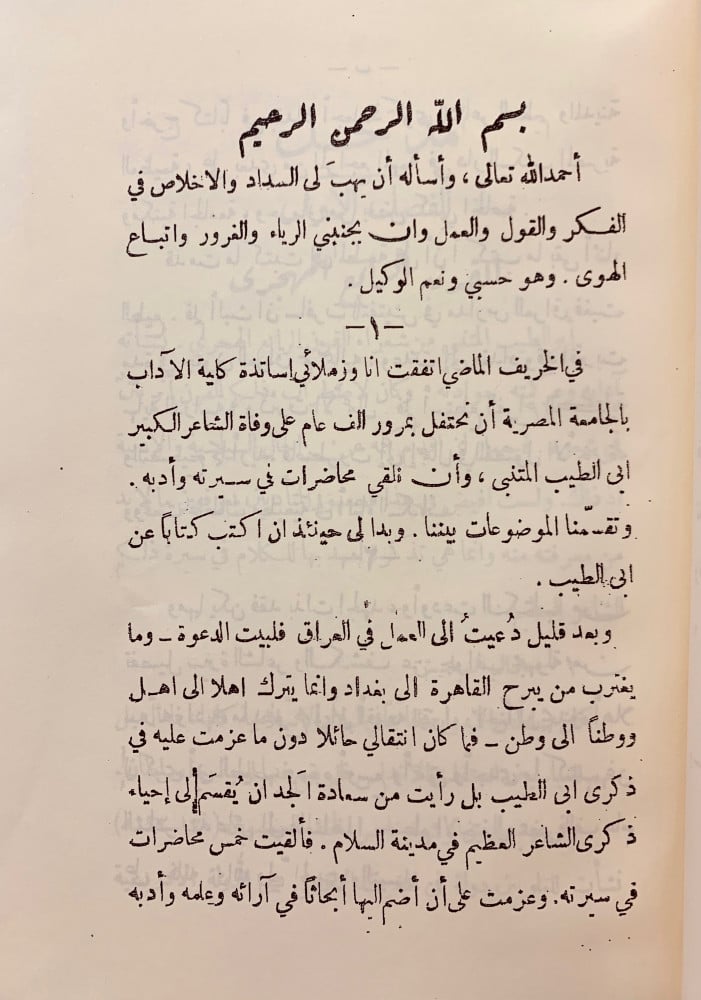 بسم الله الرحمن الرحيم
أحمد الله تعالى ، وأسأله أن يهبَ لى السداد والاخلاص في
الفكر والقول والعمل وان يجنبني الرياء والغرور واتباع
الهوى . وهو حسبي ونعم الوكيل .
-١-
في الخريف الماضي اتفقت انا وزملائي اساتذة كلية الآداب
بالجامعة المصرية أن نحتفل بمرور الف عام على وفاة الشاعر الكبير
ابى الطيب المتنبى ، وأن نلقي محاضرات في سيرته وأدبه .
وتقسّمنا الموضوعات بيننا . وبدا لى حينئذ ان اكتب كتاباً عن
ابى الطيب .
وبعد قليل دُعيتُ الى العمل في العراق فلبيت الدعوة - وما
يغترب من يبرح القاهرة الى بغداد وانما يترك اهلا الى اهل
ووطناً الى وطن - فما كان انتقالي حائلا دون ما عزمت عليه في
ذكرى ابى الطيب بل رأيت من سعادة الجد ان يُقسَم إلى إحياء
ذكرى الشاعر العظيم في مدينة السلام . فألقيت خمس محاضرات
في سيرته. وعزمت على أن أضم اليها أبحاثاً في آرائه وعلمه وأدبه